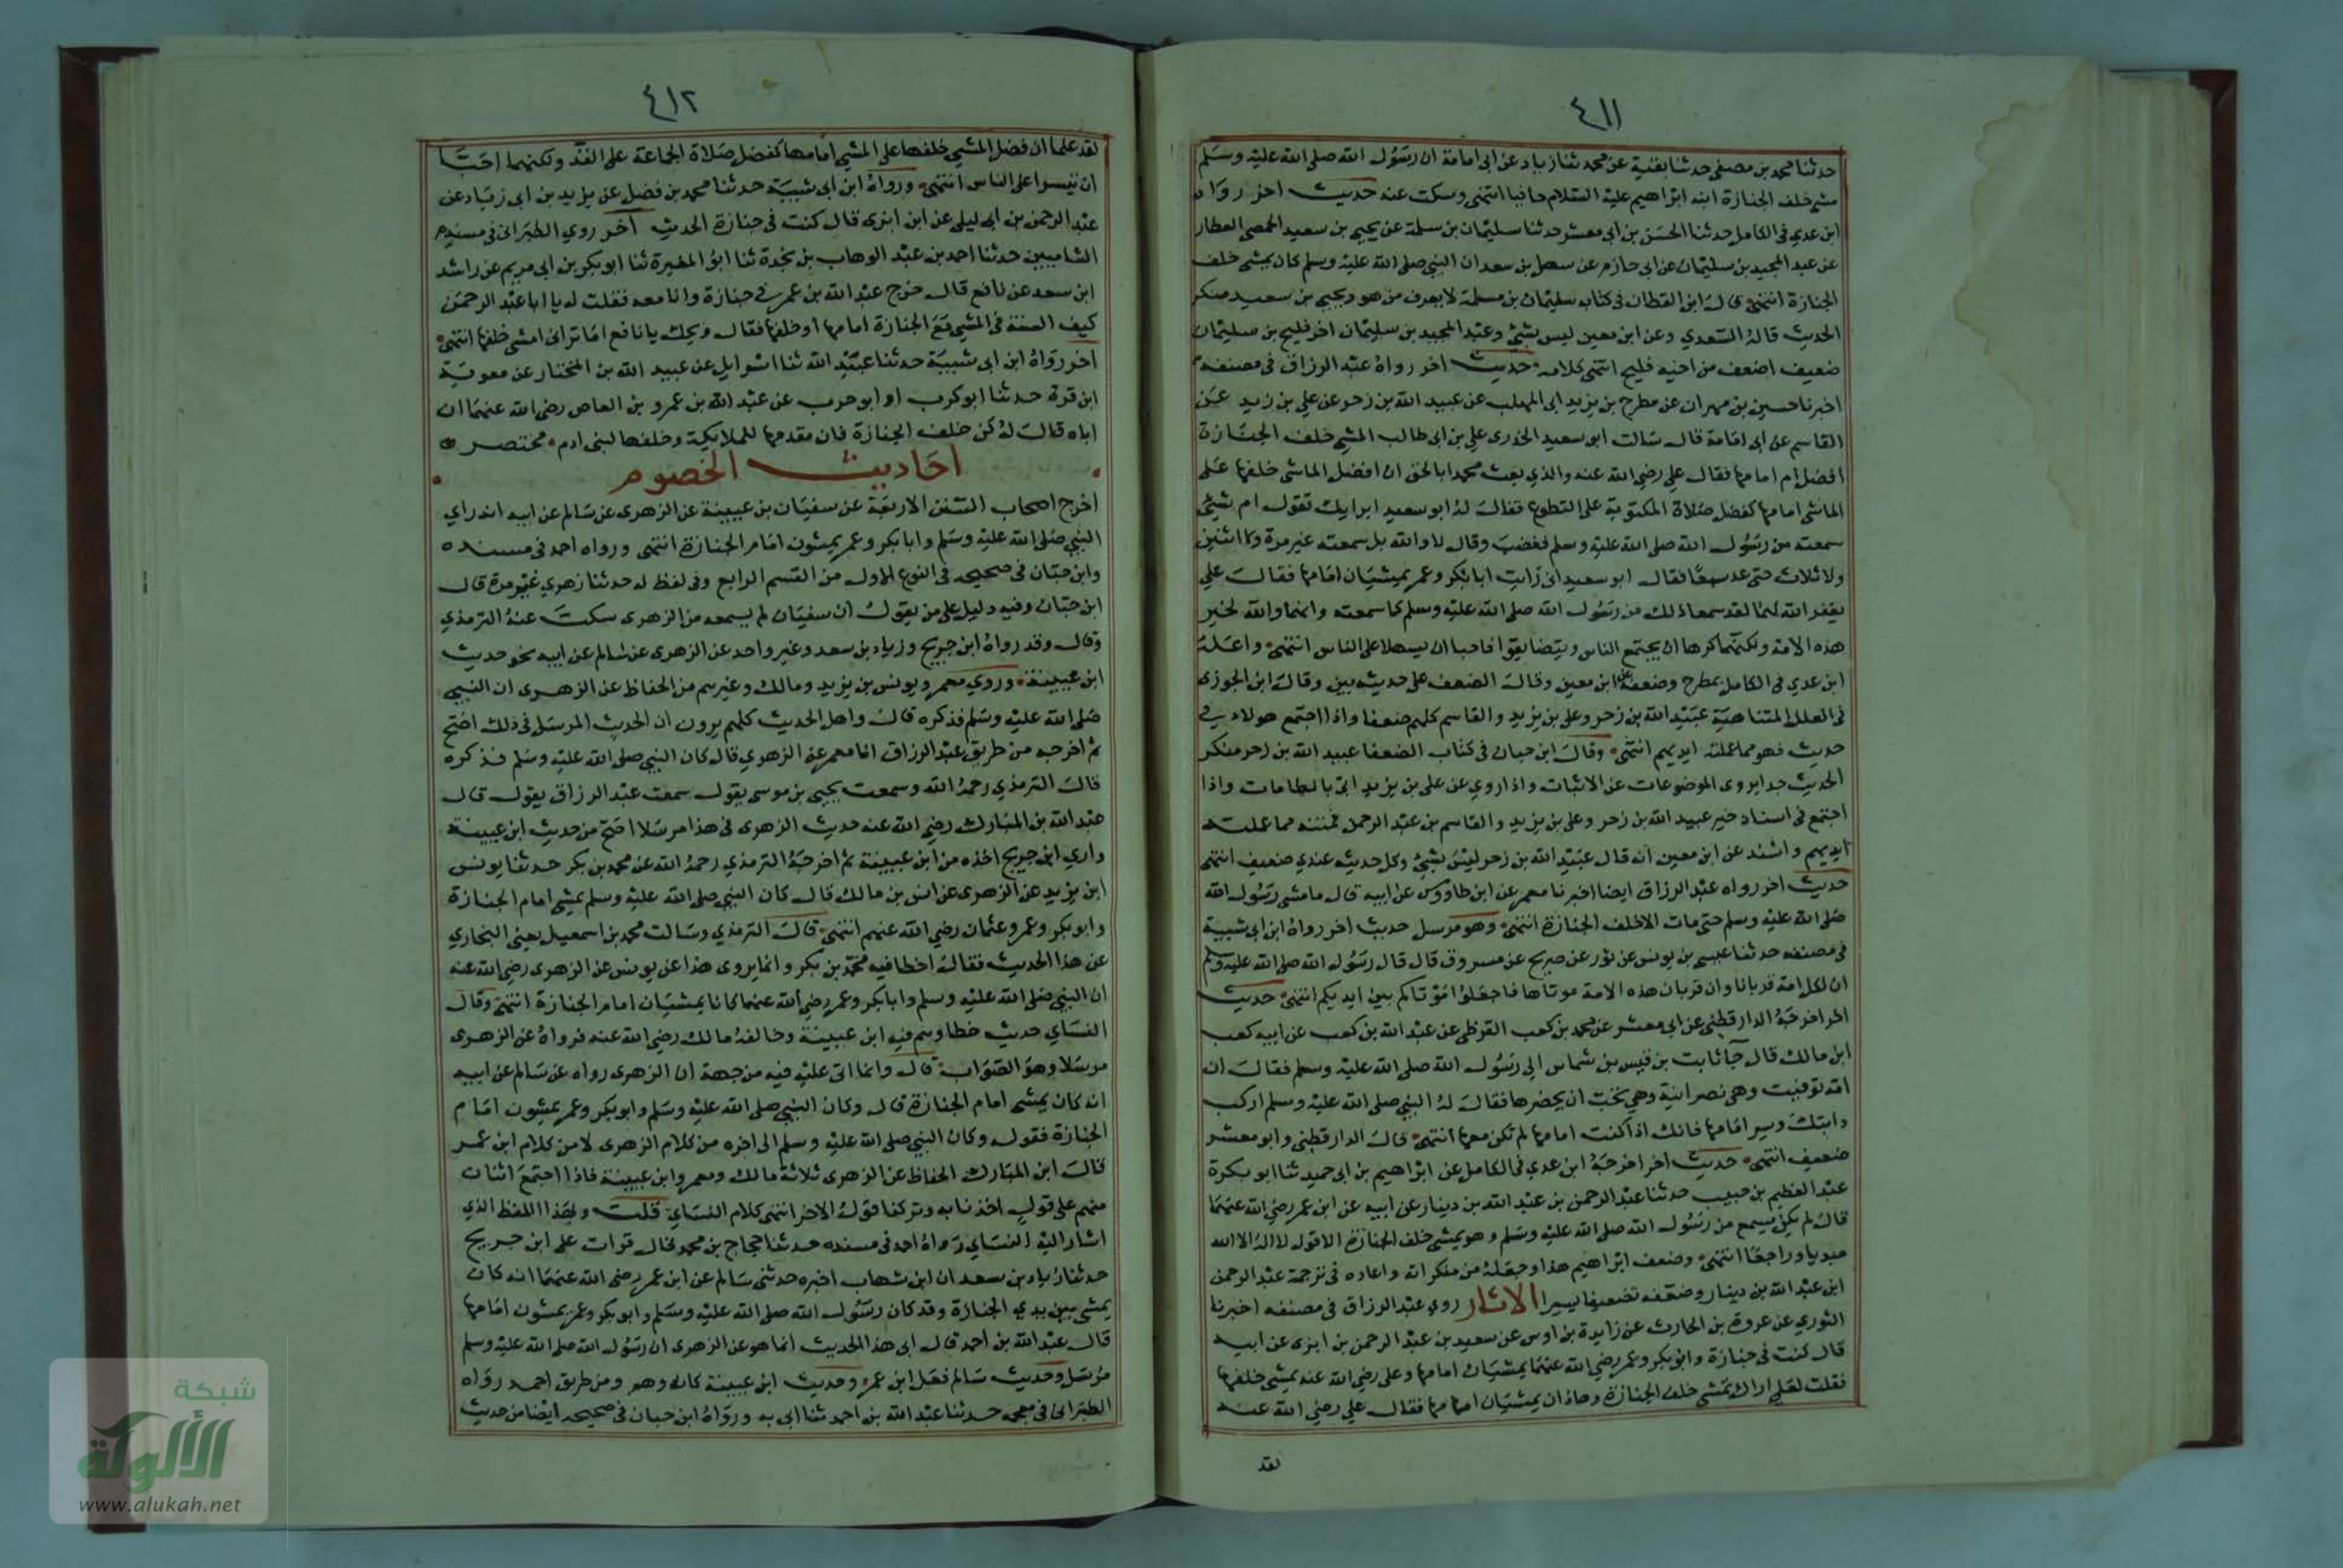 ٤١١
حدثنا محمد بن مصفى حدثنا بقية عن محمد ثنا زياد عن ابى امامة ان رسول الله صلى الله عليه وسلم
مشى خلف الجنازة ابنه ابراهيم عليه السلام حافيا انتهى وسكت عنه حديث اخر رواه
ابن عدي في الكامل حدثنا الحسن بن ابى معشر حدثنا سليمان بن سلمة عن يحيى بن سعيد الحمصى العطار
عن عبد المجيد بن سليمان عن ابى حازم عن سهل بن سعد ان النبي صلى الله عليه وسلم كان يمشى خلف
الجنازة انتهى قال ابن القطان فى كتابه سليمان بن سلمة لا يعرف من هو ويحيى بن سعيد منكر
الحديث قاله السعدي وعن ابن معين ليس بشئ وعبد المجيد بن سليمان اخو فليح بن سليمان
ضعيف اضعف من اخيه فليح انتهى كلامه حديث اخر رواه عبد الرزاق فى مصنفه
اخبرنا حسين بن مهران عن مطرح بن يزيد ابى المهلب عن عبيد الله بن زحر عن علي بن زيد عن
القاسم عن ابى امامة قال سالت ابو سعيد الخدرى علي بن ابى طالب المشي خلف الجنازة
افضل ام امامها فقال علي رضى الله عنه والذي بعث محمدا بالحق ان افضل الماشى خلفها على
الماشى امامها كفضل صلاة المكتوبة على التطوع فقال له ابو سعيد ابرايك تقول ام بشئ
سمعته من رسول الله صلى الله عليه وسلم فغضب وقال لا والله بل سمعته غير مرة ولا اثنين
ولا ثلاث حتى عد سبعا فقال ابو سعيد انى رايت ابا بكر وعمر يمشيان امامها فقال علي
يغفر الله لهما لقد سمعا ذلك من رسول الله صلى الله عليه وسلم كما سمعته وانهما والله لخير
هذه الامة ولكنهما كرها ان يجتمع الناس ويتضايقوا فاحبا ان يسهلا على الناس انتهى واعله
ابن عدي فى الكامل بمطرح وضعفه عن ابن معين وقال الضعف على حديثه بين وقال ابن الجوزى
فى العلل المتناهية عبيد الله بن زحر وعلى بن يزيد والقاسم كلهم ضعفا واذا اجتمع هولاء في
حديث فهو مما عملته ايديهم انتهى وقال ابن حبان فى كتاب الضعفا عبيد الله بن زحر منكر
الحديث جدا يروى الموضوعات عن الاثبات واذا روي عن على بن يزيد اتى بالطامات واذا
اجتمع فى اسناد خبر عبيد الله بن زحر وعلى بن يزيد والقاسم بن عبد الرحمن فمتنه مما عملت
ايديهم واسند عن ابن معين انه قال عبيد الله بن زحر ليس بشئ وكل حديثه عندي ضعيف انتهى
حديث اخر رواه عبد الرزاق ايضا اخبرنا معمر عن ابن طاووس عن ابيه قال ما مشى رسول الله
صلى الله عليه وسلم حتى مات الا خلف الجنازة انتهى وهو مرسل حديث اخر رواه ابن ابى شيبة
فى مصنفه حدثنا عيسى بن يونس عن ثور عن صريح عن مسروق قال قال رسول الله صلى الله عليه وسلم
ان لكل امة قربانا وان قربان هذه الامة موتاها فاجعلوا موتاكم بين ايديكم انتهى حديث
اخر اخرجه الدارقطنى عن ابى معشر عن محمد بن كعب القرظى عن عبد الله بن كعب عن ابيه كعب
ابن مالك قال جا ثابت بن قيس بن شماس الى رسول الله صلى الله عليه وسلم فقال ان
امه توفيت وهى نصرانية وهي يحب ان يحضرها فقال له النبي صلى الله عليه وسلم اركب
دابتك وسر امامها فانك اذا كنت امامها لم تكن معها انتهى قال الدارقطنى وابو معشر
ضعيف انتهى حديث اخر اخرجه ابن عدي فى الكامل عن ابراهيم بن ابى حميد ثنا ابو بكرة
عبد العظيم بن حبيب حدثنا عبد الرحمن بن عبد الله بن دينار عن ابيه عن ابن عمر رضى الله عنهما
قال لم يكن يسمع من رسول الله صلى الله عليه وسلم وهو يمشى خلف الجنازة الا قول لا اله الا الله
مبديا وراجعا انتهى وضعف ابراهيم هذا وجعله من منكراته واعاده فى ترجمة عبد الرحمن
ابن عبد الله بن دينار وضعفه تضعيفا يسيرا الاثار روي عبد الرزاق فى مصنفه اخبرنا
الثوري عن عروة بن الحارث عن زايدة بن اوس عن سعيد بن عبد الرحمن بن ابزى عن ابيه
قال كنت فى جنازة وابو بكر وعمر رضى الله عنهما يمشيان امامها وعلى رضى الله عنه يمشى خلفها
فقلت لعلى اراك تمشى خلف الجنازة وهاذان يمشيان امامها فقال علي رضى الله عنه
لقد
٤١٢
لقد علما ان فضل المشي خلفها على المشي امامها كفضل صلاة الجماعة على الفذ ولكنهما احبا
ان ييسرا على الناس انتهى ورواه ابن ابى شيبة حدثنا محمد بن فضل عن يزيد بن ابى زياد عن
عبد الرحمن بن ابى ليلى عن ابن ابزى قال كنت فى جنازة الحديث اخر روي الطبرانى فى مسند
الشاميين حدثنا احمد بن عبد الوهاب بن نجدة ثنا ابو المغيرة ثنا ابو بكر بن ابى مريم عن راشد
ابن سعد عن نافع قال خرج عبد الله بن عمر في جنازة وانا معه فقلت له يا ابا عبد الرحمن
كيف السنة فى المشي مع الجنازة امامها او خلفها فقال ويحك يا نافع اما ترانى امشى خلفها انتهى
اخر رواه ابن ابى شيبة حدثنا عبيد الله ثنا اسرايل عن عبيد الله بن المختار عن معوية
ابن قرة حدثنا ابو كرب او ابو حرب عن عبد الله بن عمرو بن العاص رضى الله عنهما ان
اباه قال له كن خلف الجنازة فان مقدمها للملايكة وخلفها لبنى ادم مختصر
احاديث الخصوم
اخرج اصحاب السنن الاربعة عن سفيان بن عيينة عن الزهرى عن سالم عن ابيه انه راي
النبي صلى الله عليه وسلم وابا بكر وعمر يمشون امام الجنازة انتهى ورواه احمد فى مسنده
وابن حبان فى صحيحه فى النوع الاول من القسم الرابع وفى لفظ له حدثنا زهري غير مرة قال
ابن حبان وفيه دليل على من يقول ان سفيان لم يسمعه من الزهرى سكت عنه الترمذي
وقال وقد رواه ابن جريج وزياد بن سعد وغير واحد عن الزهرى عن سالم عن ابيه نحو حديث
ابن عيينة وروي معمر ويونس بن يزيد ومالك وغيرهم من الحفاظ عن الزهرى ان النبي
صلى الله عليه وسلم فذكره قال واهل الحديث كلهم يرون ان الحديث المرسل فى ذلك اصح
ثم اخرجه من طريق عبد الرزاق انا معمر عن الزهري قال كان النبي صلى الله عليه وسلم فذكره
قال الترمذي رحمه الله وسمعت يحيى بن موسى يقول سمعت عبد الرزاق يقول قال
عبد الله بن المبارك رضى الله عنه حديث الزهرى فى هذا مرسلا اصح من حديث ابن عيينة
واري ابن جريج اخذه من ابن عيينة ثم اخرجه الترمذي رحمه الله عن محمد بن بكر حدثنا يونس
ابن يزيد عن الزهرى عن انس بن مالك قال كان النبي صلى الله عليه وسلم يمشى امام الجنازة
وابو بكر وعمر وعثمان رضى الله عنهم انتهى قال الترمذي وسالت محمد بن اسمعيل يعنى البخاري
عن هذا الحديث فقال اخطا فيه محمد بن بكر وانما يروى هذا عن يونس عن الزهرى رضى الله عنه
ان النبي صلى الله عليه وسلم وابا بكر وعمر رضى الله عنهما كانا يمشيان امام الجنازة انتهى وقال
النساي حديث خطا وهم فيه ابن عيينة وخالفه مالك رضى الله عنه فرواه عن الزهرى
مرسلا وهو الصواب قال وانما اتى عليه فيه من جهة ان الزهرى رواه عن سالم عن ابيه
انه كان يمشى امام الجنازة قال وكان النبي صلى الله عليه وسلم وابو بكر وعمر يمشون امام
الجنازة فقوله وكان النبي صلى الله عليه وسلم الى اخره من كلام الزهرى لا من كلام ابن عمر
قال ابن المبارك الحفاظ عن الزهرى ثلاثة مالك ومعمر وابن عيينة فاذا اجتمع اثنان
منهم على قول اخذنا به وتركنا قول الاخر انتهى كلام النساي قلت وبهذا اللفظ الذي
اشار اليه النساي رواه احمد فى مسنده حدثنا حجاج بن محمد قال قرات على ابن جريج
حدثنا زياد بن سعد ان ابن شهاب اخبره حدثنى سالم عن ابن عمر رضى الله عنهما انه كان
يمشى بين يدي الجنازة وقد كان رسول الله صلى الله عليه وسلم وابو بكر وعمر يمشون امامها
قال عبد الله بن احمد قال ابى هذا الحديث انما هو عن الزهرى ان رسول الله صلى الله عليه وسلم
مرسل وحديث سالم فعل ابن عمر وحديث ابن عيينة كانه وهم ومن طريق احمد رواه
الطبرانى فى معجمه حدثنا عبد الله بن احمد ثنا ابى به ورواه ابن حبان فى صحيحه ايضا من حديث
شبكة
الألوكة
www.alukah.net